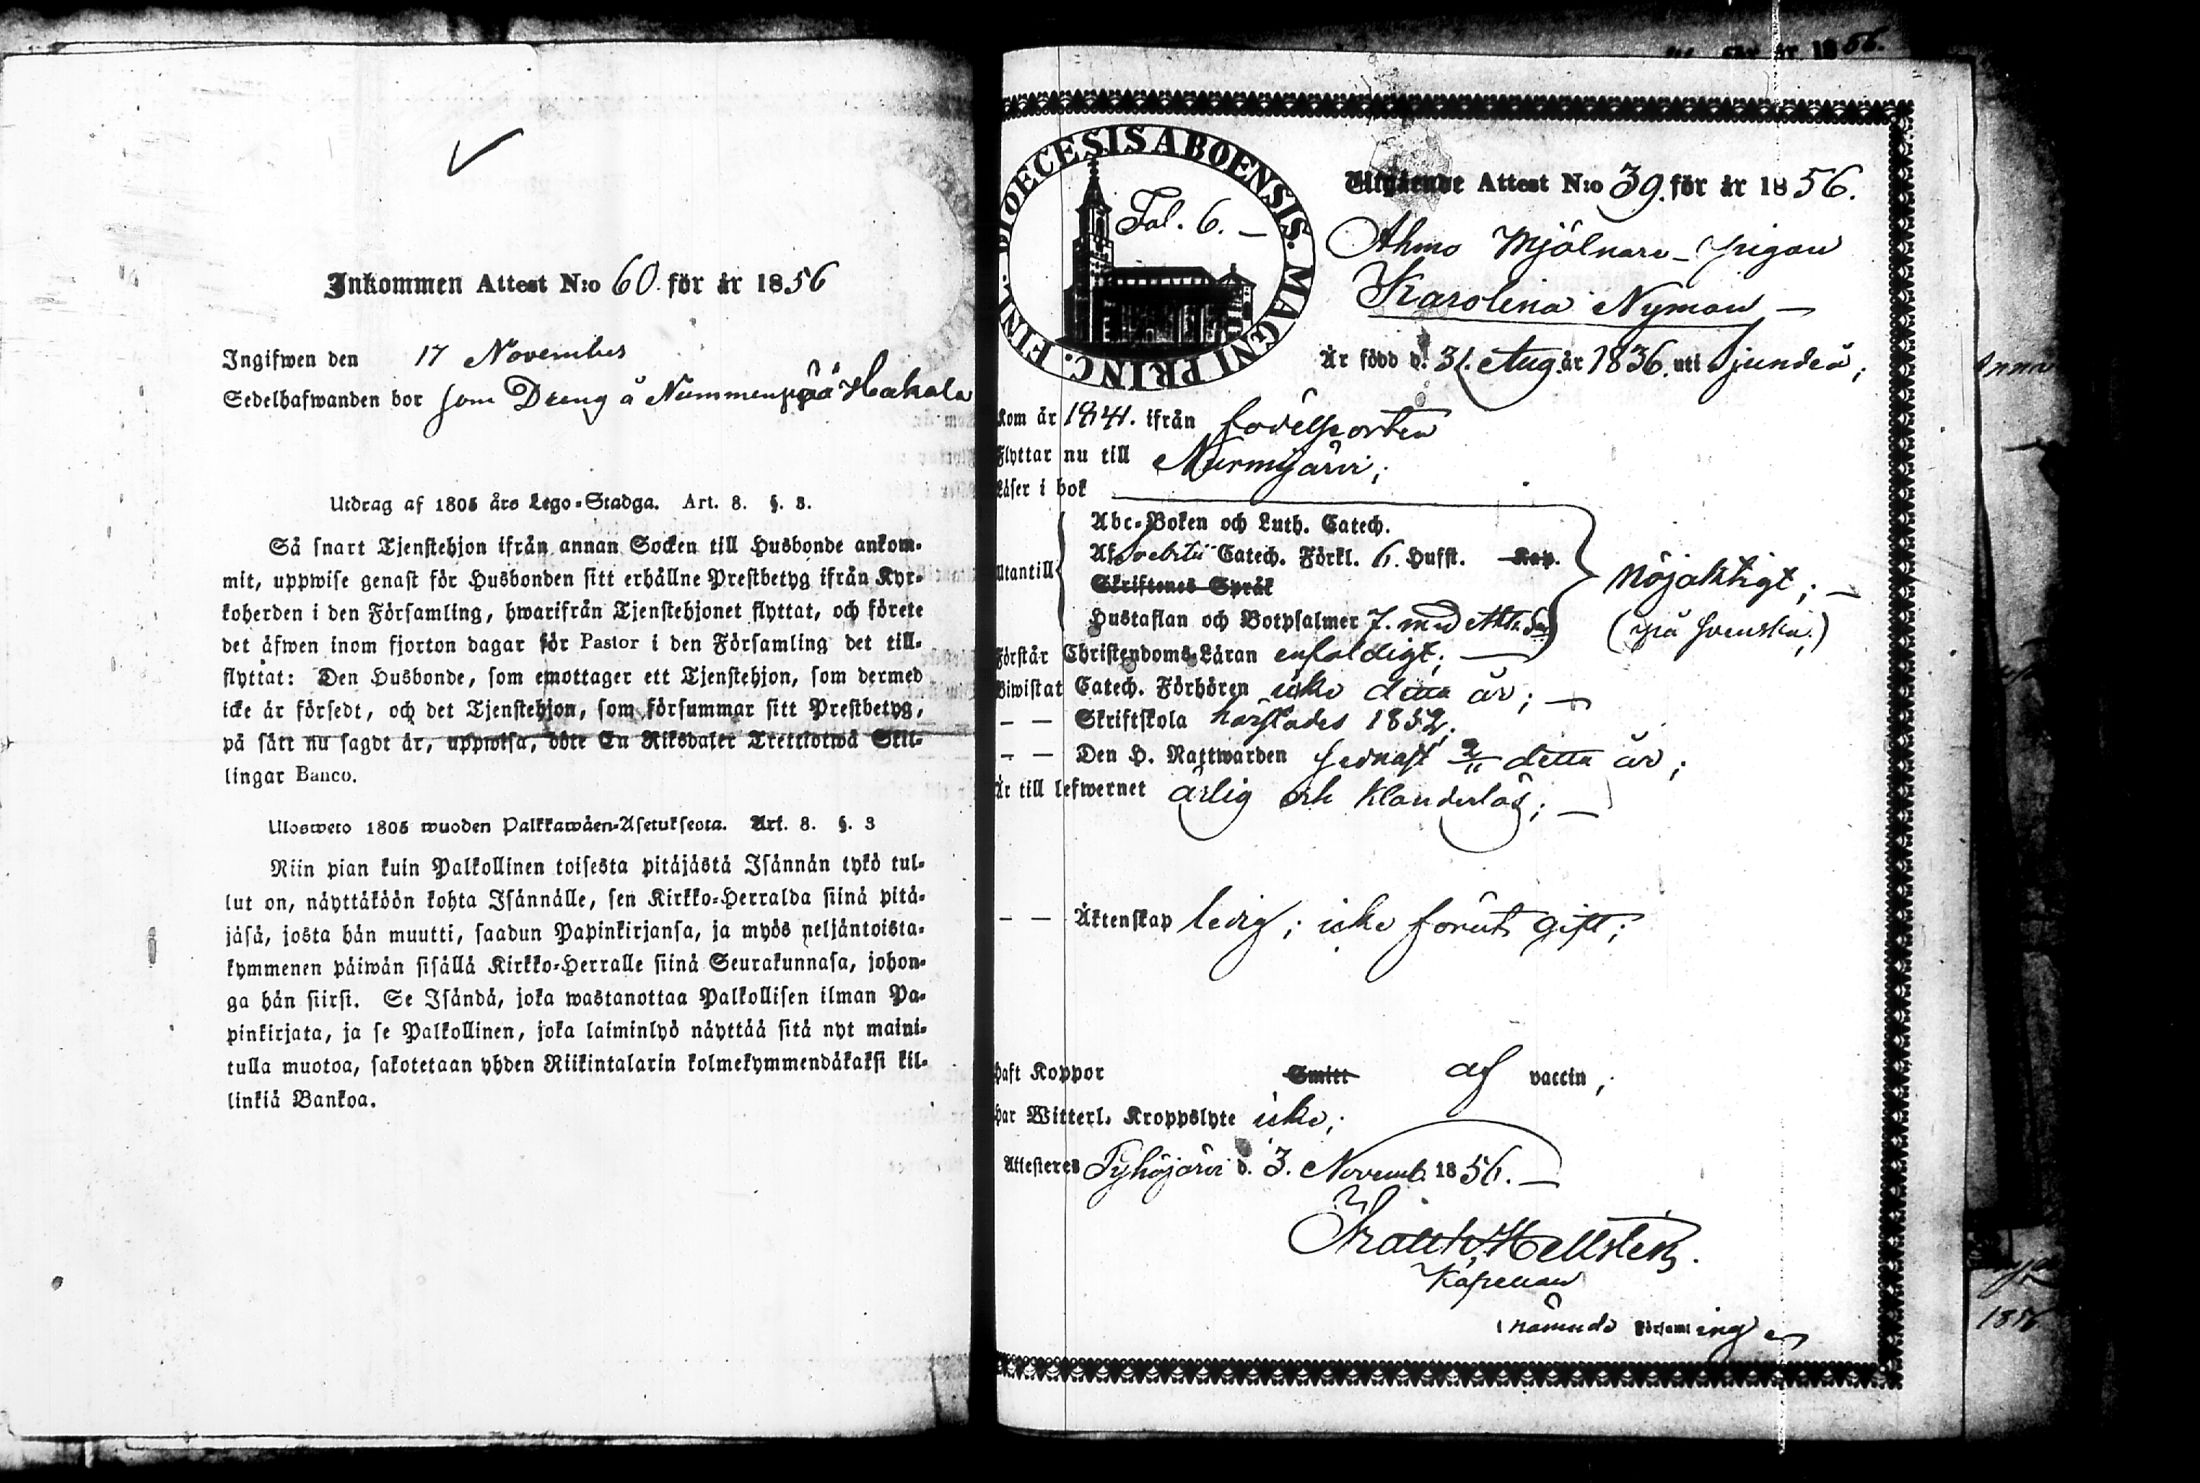 Inkommen Attest N:o 60. för år 1856
Ingifwen den 17 November
Sedelhafwanden bor som Dreng å Nummenpää Hakala
Utdrag af 1805 års Lego-Stadga. Art. 8. §. 3.
Så snart Tjenstehjon ifrån annan Socken till Husbonde ankom-
mit, uppwise genast för Husbonden sitt erhållne Prestbetyg ifrån Kyr-
koherden i den Församling, hwarifrån Tjenstehjonet flyttat, och förete
det äfwen inom fjorton dagar för Pastor i den Församling det till-
flyttat: Den Husbonde, som emottager ett Tjenstehjon, som dermed
icke är försedt, och det Tjenstehjon, som försummar sitt Prestbetyg,
på sätt nu sagdt är, uppwisa, böte En Riksdaler Trettiotwå Skil-
lingar Banco.
Ulosweto 1805 wuoden Palkkawäen-Asetuksesta. Art. 8. §. 3
Niin pian kuin Palkollinen toisesta pitäjästä Isännän tykö tul-
lut on, näyttäköön kohta Isännälle, sen Kirkko-Herralda siinä pitä-
jäsä, josta hän muutti, saadun Papinkirjansa, ja myös neljäntoista-
kymmenen päiwän sisällä Kirkko-Herralle siinä Seurakunnasa, johon-
ga hän siirsi. Se Isändä, joka wastanottaa Palkollisen ilman Pa-
pinkirjata, ja se Palkollinen, joka laiminlyö näyttää sitä nyt maini-
tulla muotoa, sakotetaan yhden Riikintalarin kolmekymmendäkaksi kil-
linkiä Bankoa.
för år 1856.
DIOECESIS ABOENSIS. MAGNI PRINC. FINL.
Fol. 6. —
Utgående Attest N:o 39. för år 1856.
Ahmo Mjölnare-pigan
Karolina Nyman —
Är född d. 31. Aug. år 1836. uti Sjundeå;
Kom år 1841. ifrån födelseorten
Flyttar nu till Nurmijärvi;
Läser i bok
Utantill
Abc-Boken och Luth. Catech.
Af Svebilii Catech. Förkl. 6. Hufst. Kap.
Skriftenes Språk
Hustaflan och Botpsalmer 7. med Ath. Sy.
nöjaktigt; —
(på svenska;)
Förstår Christendoms-Läran enfaldigt; —
Biwistat Catech. Förhören icke detta år; —
— — Skriftskola härstädes 1852;
— — Den H. Nattwarden sednast 2/11 detta år;
Är till lefwernet ärlig och klanderlös; —
— — Äktenskap ledig; icke förut gift;
Haft Koppor Smitt af vaccin;
Har Witterl. Kroppslyte icke;
Attesteres Pyhäjärvi d. 3. Novemb. 1856. —
Hellsten.
Kapellan
i nämnde Församlingen